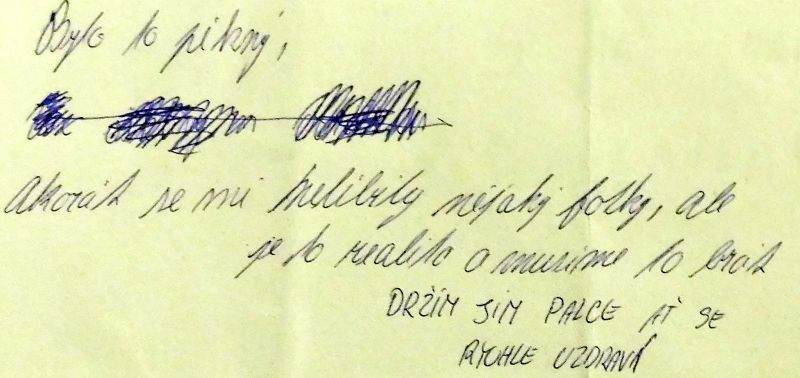 Bylo to pěkný,
akorát se mi nelíbily nějaký fotky, ale
je to realita a musíme to brát
DRŽÍM JIM PALCE AŤ SE
RYCHLE UZDRAVÍ